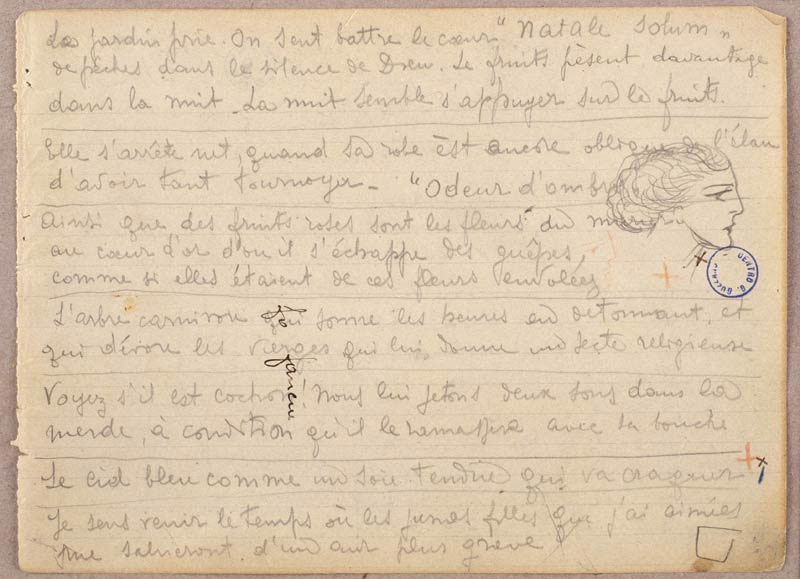 Le jardin prie. On sent battre le cœur "Natale solum"
de pêches dans le silence de Dieu. Le fruits pèsent davantage
dans la nuit. La nuit semble s'appuyer sur le fruits.
Elle s'arrête net, quand sa robe est encore oblique de l'élan
d'avoir tant tournoyer - "Odeur d'ombre
ainsi que des fruits roses sont les fleurs du
au cœur d'or d'où il s'échappe des guêpes,
comme si elles étaient de ces fleurs envolées
L'arbre carnivore qui sonne les heures en detonnant, et
qui dévore les vierges qui lui donne une secte religieuse
Voyez s'il est cochon! Nous lui jetons deux sous dans la
merde, à condition qu'il le ramassera avec sa bouche
Le ciel bleu comme un soie tendue qui va craquer
Je sens venir le temps où les jeunes filles que j'ai aimées
me salueront d'un air plus grave